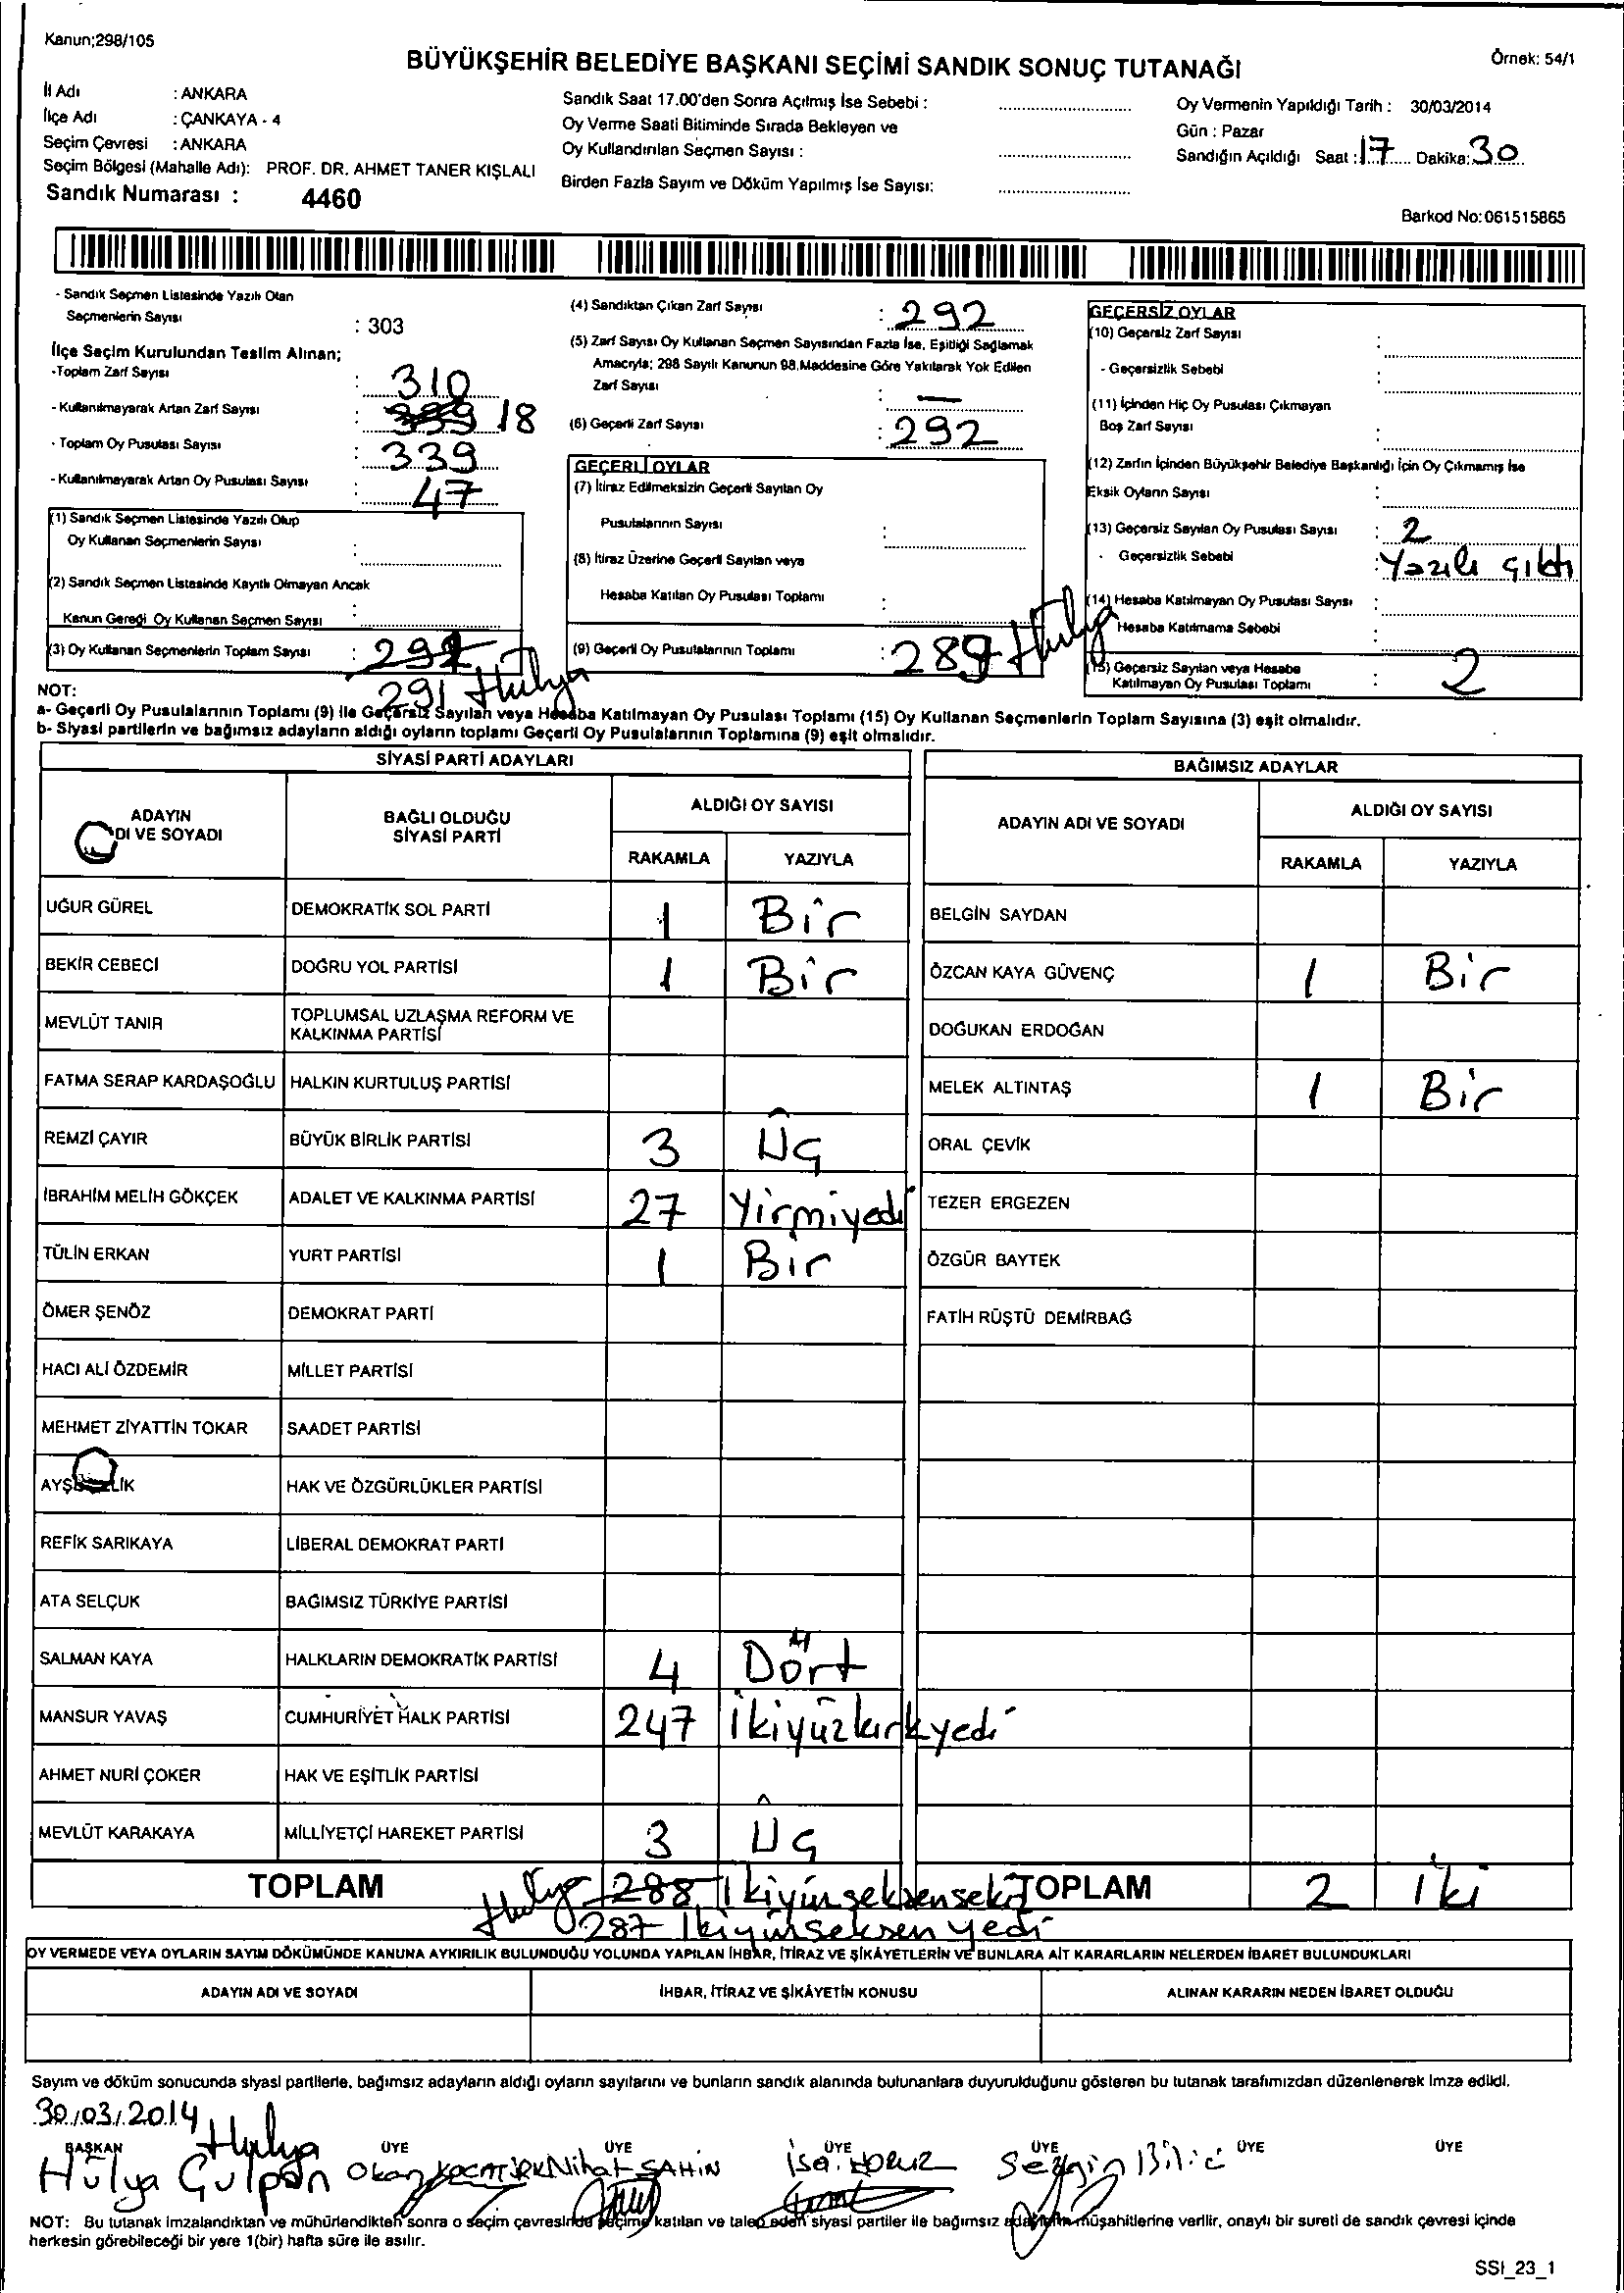 Kanun;298/105
BÜYÜKŞEHİR BELEDİYE BAŞKANI SEÇİMİ SANDIK SONUÇ TUTANAĞI
Örnek: 54/1
İl Adı : ANKARA
İlçe Adı : ÇANKAYA - 4
Seçim Çevresi : ANKARA
Seçim Bölgesi (Mahalle Adı): PROF. DR. AHMET TANER KIŞLALI
Sandık Numarası : 4460
Sandık Saat 17.00'den Sonra Açılmış İse Sebebi :
Oy Verme Saati Bitiminde Sırada Bekleyen ve
Oy Kullandırılan Seçmen Sayısı :
Birden Fazla Sayım ve Döküm Yapılmış İse Sayısı:
Oy Vermenin Yapıldığı Tarih : 30/03/2014
Gün : Pazar
Sandığın Açıldığı Saat : 17 Dakika: 30
Barkod No:061515865
- Sandık Seçmen Listesinde Yazılı Olan
Seçmenlerin Sayısı : 303
İlçe Seçim Kurulundan Teslim Alınan;
-Toplam Zarf Sayısı : 310
- Kullanılmayarak Artan Zarf Sayısı : 339 18
- Toplam Oy Pusulası Sayısı : 339
- Kullanılmayarak Artan Oy Pusulası Sayısı : 47
(1) Sandık Seçmen Listesinde Yazılı Olup
Oy Kullanan Seçmenlerin Sayısı :
(2) Sandık Seçmen Listesinde Kayıtlı Olmayan Ancak
Kanun Gereği Oy Kullanan Seçmen Sayısı :
(3) Oy Kullanan Seçmenlerin Toplam Sayısı :
291 Hülya
(4) Sandıktan Çıkan Zarf Sayısı : 292
(5) Zarf Sayısı Oy Kullanan Seçmen Sayısından Fazla İse, Eşitliği Sağlamak
Amacıyla; 298 Sayılı Kanunun 98.Maddesine Göre Yakılarak Yok Edilen
Zarf Sayısı : —
(6) Geçerli Zarf Sayısı : 292
GEÇERLİ OYLAR
(7) İtiraz Edilmeksizin Geçerli Sayılan Oy
Pusulalarının Sayısı :
(8) İtiraz Üzerine Geçerli Sayılan veya
Hesaba Katılan Oy Pusulası Toplamı :
(9) Geçerli Oy Pusulalarının Toplamı : 289 Hülya
GEÇERSİZ OYLAR
(10) Geçersiz Zarf Sayısı :
- Geçersizlik Sebebi :
(11) İçinden Hiç Oy Pusulası Çıkmayan
Boş Zarf Sayısı :
(12) Zarfın İçinden Büyükşehir Belediye Başkanlığı İçin Oy Çıkmamış İse
Eksik Oyların Sayısı :
(13) Geçersiz Sayılan Oy Pusulası Sayısı : 2
- Geçersizlik Sebebi : Yazılı çıktı
(14) Hesaba Katılmayan Oy Pusulası Sayısı :
Hesaba Katılmama Sebebi :
(15) Geçersiz Sayılan veya Hesaba
Katılmayan Oy Pusulası Toplamı : 2
NOT:
a- Geçerli Oy Pusulalarının Toplamı (9) ile Geçersiz Sayılan veya Hesaba Katılmayan Oy Pusulası Toplamı (15) Oy Kullanan Seçmenlerin Toplam Sayısına (3) eşit olmalıdır.
b- Siyasi partilerin ve bağımsız adayların aldığı oyların toplamı Geçerli Oy Pusulalarının Toplamına (9) eşit olmalıdır.
SİYASİ PARTİ ADAYLARI
ADAYIN
DI VE SOYADI
BAĞLI OLDUĞU
SİYASİ PARTİ
ALDIĞI OY SAYISI
RAKAMLA YAZIYLA
UĞUR GÜREL DEMOKRATİK SOL PARTİ 1 Bir
BEKİR CEBECİ DOĞRU YOL PARTİSİ 1 Bir
MEVLÜT TANIR TOPLUMSAL UZLAŞMA REFORM VE
KALKINMA PARTİSİ
FATMA SERAP KARDAŞOĞLU HALKIN KURTULUŞ PARTİSİ
REMZİ ÇAYIR BÜYÜK BİRLİK PARTİSİ 3 Üç
İBRAHİM MELİH GÖKÇEK ADALET VE KALKINMA PARTİSİ 27 Yirmiyedi
TÜLİN ERKAN YURT PARTİSİ 1 Bir
ÖMER ŞENÖZ DEMOKRAT PARTİ
HACI ALİ ÖZDEMİR MİLLET PARTİSİ
MEHMET ZİYATTİN TOKAR SAADET PARTİSİ
HAK VE ÖZGÜRLÜKLER PARTİSİ
REFİK SARIKAYA LİBERAL DEMOKRAT PARTİ
ATA SELÇUK BAĞIMSIZ TÜRKİYE PARTİSİ
SALMAN KAYA HALKLARIN DEMOKRATİK PARTİSİ 4 Dört
MANSUR YAVAŞ CUMHURİYET HALK PARTİSİ 247 İkiyüzkırkyedi
AHMET NURİ ÇOKER HAK VE EŞİTLİK PARTİSİ
MEVLÜT KARAKAYA MİLLİYETÇİ HAREKET PARTİSİ 3 Üç
TOPLAM Hülya 288 İkiyüzseksensekiz
287 İkiyüzseksen yedi
BAĞIMSIZ ADAYLAR
ADAYIN ADI VE SOYADI
ALDIĞI OY SAYISI
RAKAMLA YAZIYLA
BELGİN SAYDAN
ÖZCAN KAYA GÜVENÇ 1 Bir
DOĞUKAN ERDOĞAN
MELEK ALTINTAŞ 1 Bir
ORAL ÇEVİK
TEZER ERGEZEN
ÖZGÜR BAYTEK
FATİH RÜŞTÜ DEMİRBAĞ
TOPLAM 2 İki
OY VERMEDE VEYA OYLARIN SAYIM DÖKÜMÜNDE KANUNA AYKIRILIK BULUNDUĞU YOLUNDA YAPILAN İHBAR, İTİRAZ VE ŞİKÂYETLERİN VE BUNLARA AİT KARARLARIN NELERDEN İBARET BULUNDUKLARI
ADAYIN ADI VE SOYADI İHBAR, İTİRAZ VE ŞİKÂYETİN KONUSU ALINAN KARARIN NEDEN İBARET OLDUĞU
Sayım ve döküm sonucunda siyasi partilerle, bağımsız adayların aldığı oyların sayılarını ve bunların sandık alanında bulunanlara duyurulduğunu gösteren bu tutanak tarafımızdan düzenlenerek imza edildi.
30/03/2014
Hülya
BAŞKAN ÜYE ÜYE ÜYE ÜYE ÜYE ÜYE
Hülya Gülpan Okan Nihat ŞAHİN İsa Sezgin Bilic
NOT: Bu tutanak imzalandıktan ve mühürlendikten sonra o seçim çevresinde seçime katılan ve talep eden siyasi partiler ile bağımsız adayların müşahitlerine verilir, onaylı bir sureti de sandık çevresi içinde
herkesin görebileceği bir yere 1(bir) hafta süre ile asılır.
SSI_23_1